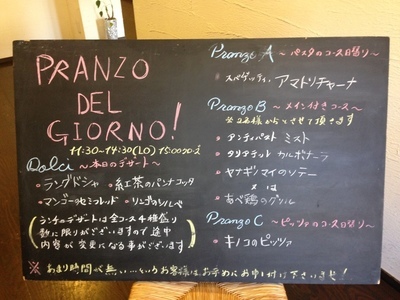 PRANZO
DEL
GIORNO!
11:30~14:30(LO) 15:00クローズ
Dolci ~本日のデザート~
・ラングドシャ ・紅茶のパンナコッタ
・マンゴーのセミフレッド ・リンゴのシルベ
(ランチのデザートは全コース4種盛り
数に限りがございますので途中
内容が変更になる事がございます)
Pranzo A ~パスタのコース日替り~
・スパゲッティ アマトリチャーナ
Pranzo B ~メイン付きコース~
※2名様からとさせて頂きます
・アンティパスト ミスト
・タリアテッレ カルボナーラ
・ヤナギマイのソテー
又は
・あべ鶏のグリル
Pranzo C ~ピッツァのコース日替り~
・キノコのピッツァ
※あまり時間が無い…というお客様は、お早めにお申し付け下さいませ!